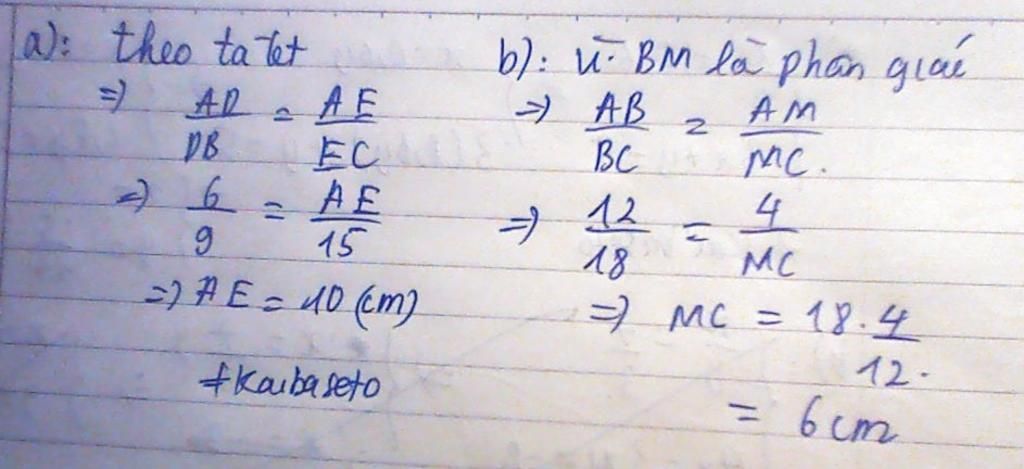 a): theo ta let
=> AD/DB = AE/EC
=> 6/9 = AE/15
=> AE = 10 (cm)
+Kaibaseto
b): Vì BM là phân giác
=> AB/BC = AM/MC.
=> 12/18 = 4/MC
=> MC = 18.4/12.
= 6cm